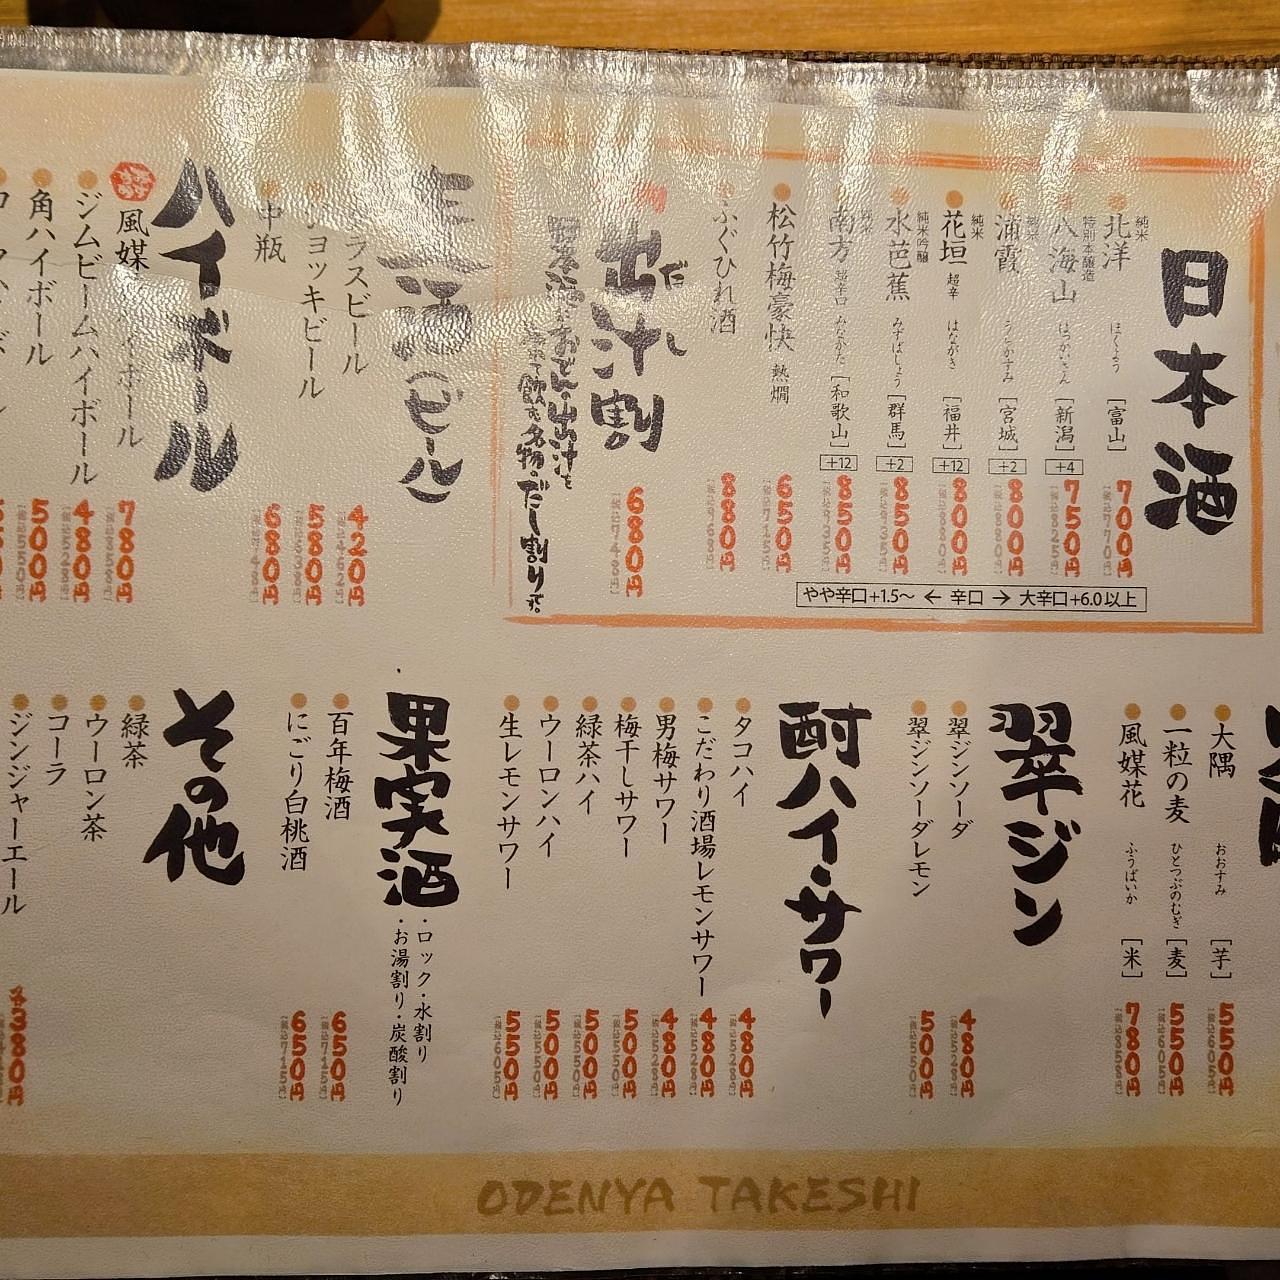 日本酒
純米 北洋 ほくよう [富山] 700円 [税込770円]
特別本醸造 八海山 はっかいさん [新潟] +4 750円 [税込825円]
純米 浦霞 うらかすみ [宮城] +2 800円 [税込880円]
純米 花垣 超辛 はながき [福井] +12 800円 [税込880円]
純米吟醸 水芭蕉 みずばしょう [群馬] +2 850円 [税込935円]
純米 南方 超辛口 みなかた [和歌山] +12 850円 [税込935円]
松竹梅豪快 熱燗 650円 [税込715円]
ふぐひれ酒 880円 [税込968円]
やや辛口+1.5〜 ← 辛口 → 大辛口+6.0以上
出汁割 だし 680円 [税込748円]
日本酒におでん出汁を
て飲む名物・だし割りです。
生酒(ビール)
グラスビール 420円 [税込462円]
ジョッキビール 580円 [税込638円]
中瓶 680円 [税込748円]
ハイボール
風媒花ハイボール 780円 [税込858円]
ジムビームハイボール 480円 [税込528円]
角ハイボール 500円 [税込550円]
大隅 おおすみ [芋] 550円 [税込605円]
一粒の麦 ひとつぶのむぎ [麦] 550円 [税込605円]
風媒花 ふうばいか [米] 780円 [税込858円]
翠ジン
翠ジンソーダ 480円 [税込528円]
翠ジンソーダレモン 500円 [税込550円]
酎ハイ・サワー
タコハイ 480円 [税込528円]
こだわり酒場レモンサワー 480円 [税込528円]
男梅サワー 480円 [税込528円]
梅干しサワー 500円 [税込550円]
緑茶ハイ 500円 [税込550円]
ウーロンハイ 500円 [税込550円]
生レモンサワー 550円 [税込605円]
果実酒
・ロック・水割り
・お湯割り・炭酸割り
百年梅酒 650円 [税込715円]
にごり白桃酒 650円 [税込715円]
その他
緑茶
ウーロン茶
コーラ
ジンジャーエール
各380円
ODENYA TAKESHI